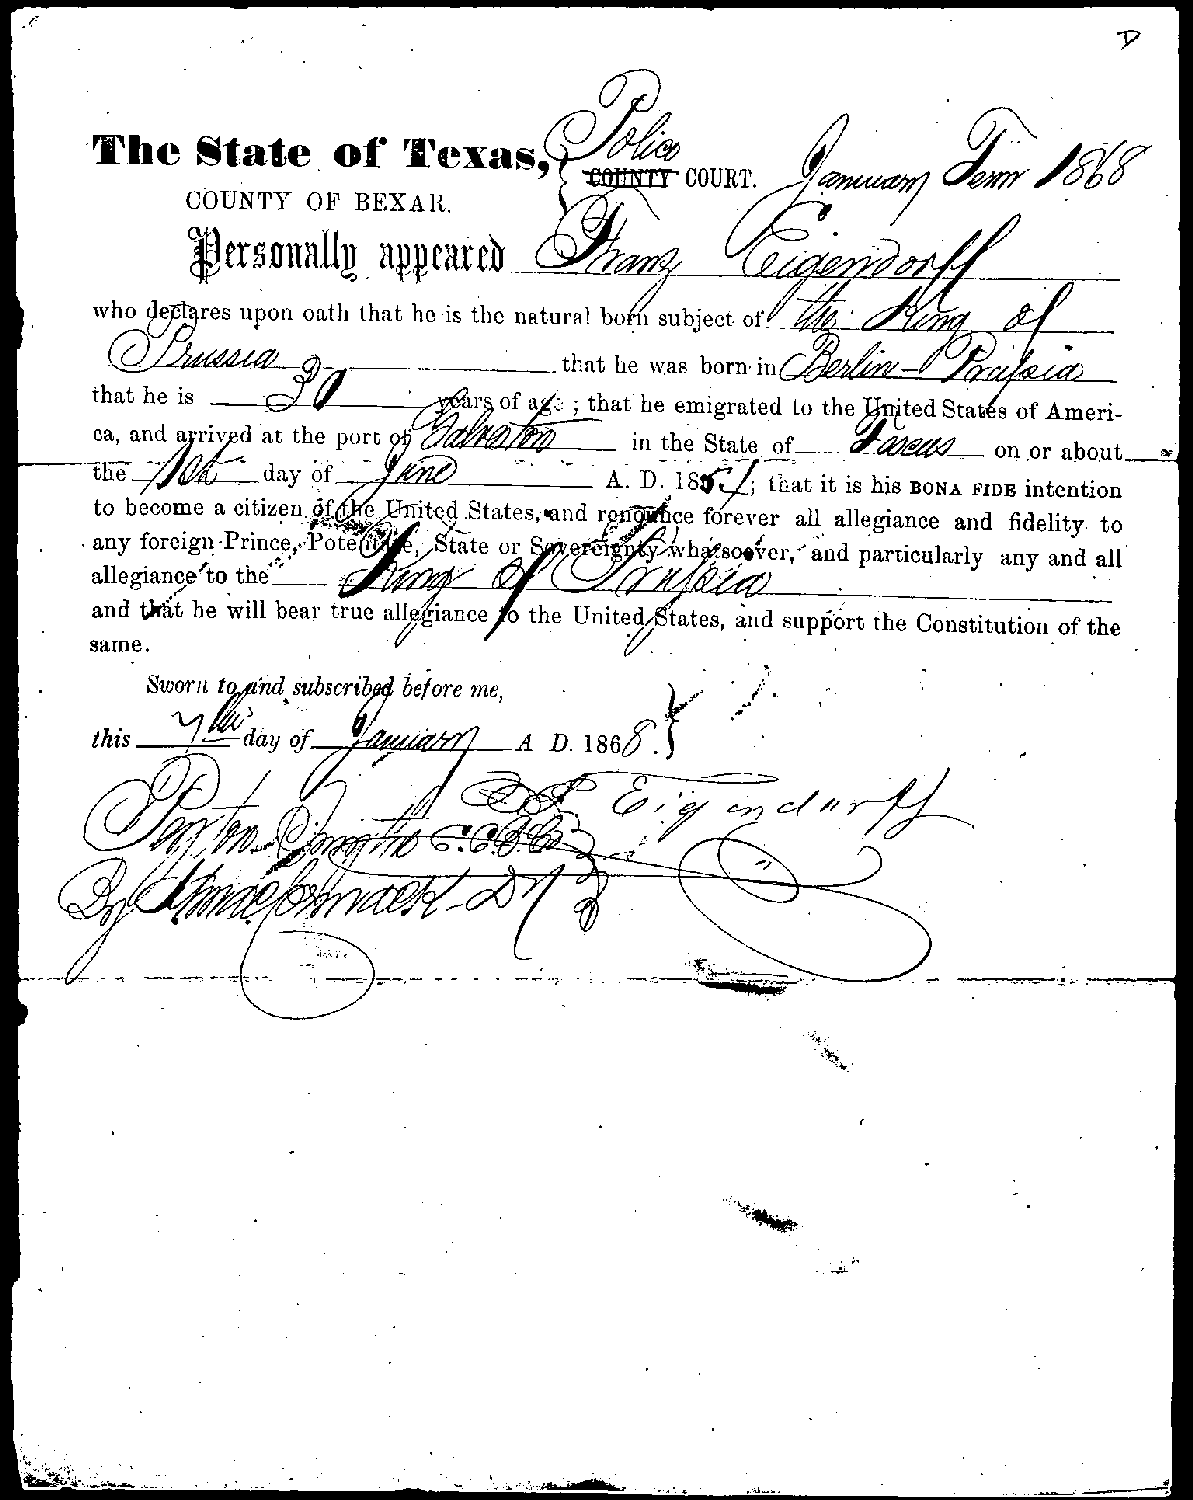 D
Police
The State of Texas, } COUNTY COURT. January Term 1868
COUNTY OF BEXAR.
Personally appeared Franz Eigendorff
who declares upon oath that he is the natural born subject of the King of
Prussia that he was born in Berlin - Prussia
that he is 30 years of age ; that he emigrated to the United States of Ameri-
ca, and arrived at the port of Galveston in the State of Texas on or about
the 1st day of June A. D. 185 ; that it is his BONA FIDE intention
to become a citizen of the United States, and renounce forever all allegiance and fidelity to
any foreign Prince, Potentate, State or Sovereignty whatsoever, and particularly any and all
allegiance to the King of Prussia
and that he will bear true allegiance to the United States, and support the Constitution of the
same.
Sworn to and subscribed before me,
this 7th day of January A D. 1868. }
F. Eigendorff
Paxton Smith C.C.B.C.
By McCormack Dy